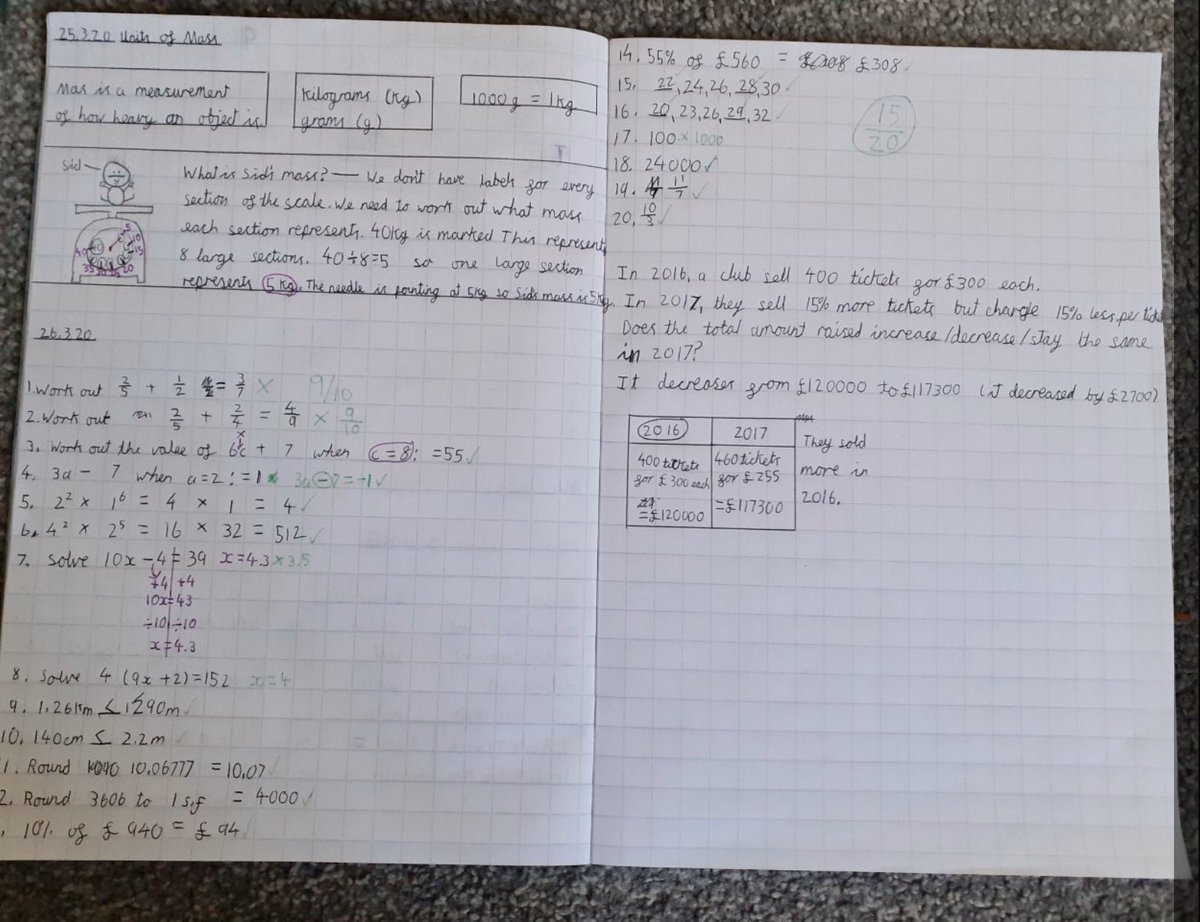 25.3.20 Units of Mass
Mas is a measurement
of how heavy an object is.
Kilograms (Kg)
grams (g)
1000g = 1kg
Sid
What is Sid's mass? — We don't have labels for every
section of the scale. We need to work out what mass
each section represents. 40kg is marked This represents
8 large sections. 40÷8=5 so one large section
represents 5kg. The needle is pointing at 5kg so Sid's mass is 5kg.
5
10
15
20
25
30
35
40
26.3.20
1. Work out 2/5 + 1/2 = 3/7 × 9/10
2. Work out 2/5 + 2/4 = 4/9 × 9/10
3. Work out the value of 6c + 7 when c=8: =55 ✓
4. 3a - 7 when a=2: =1 3a-7=-1 ✓
5. 2² × 1⁶ = 4 × 1 = 4 ✓
6. 4² × 2⁵ = 16 × 32 = 512 ✓
7. Solve 10x - 4 = 39 x=4.3 × 3.5
+4 +4
10x=43
÷10 ÷10
x=4.3
8. Solve 4 (9x +2)=152 x=4
9. 1.26km ≤ 1290m ✓
10. 140cm ≤ 2.2m ✓
1. Round 10.06777 = 10.07 ✓
2. Round 3606 to 1 s.f = 4000 ✓
. 10% of £940 = £94 ✓
14. 55% of £560 = £308 ✓
15. 22, 24, 26, 28, 30 ✓
16. 20, 23, 26, 29, 32 ✓
17. 100 × 1000
18. 24000 ✓
19. 11/7 ✓
20, 10/3 ✓
15/20
In 2016, a club sell 400 tickets for £300 each.
In 2017, they sell 15% more tickets but charge 15% less per ticket
Does the total amount raised increase/decrease/stay the same
in 2017?
It decreases from £120000 to £117300 (it decreased by £2700)
2016 2017
400 tickets 460 tickets
for £300 each for £255
=£120000 =£117300
They sold
more in
2016.